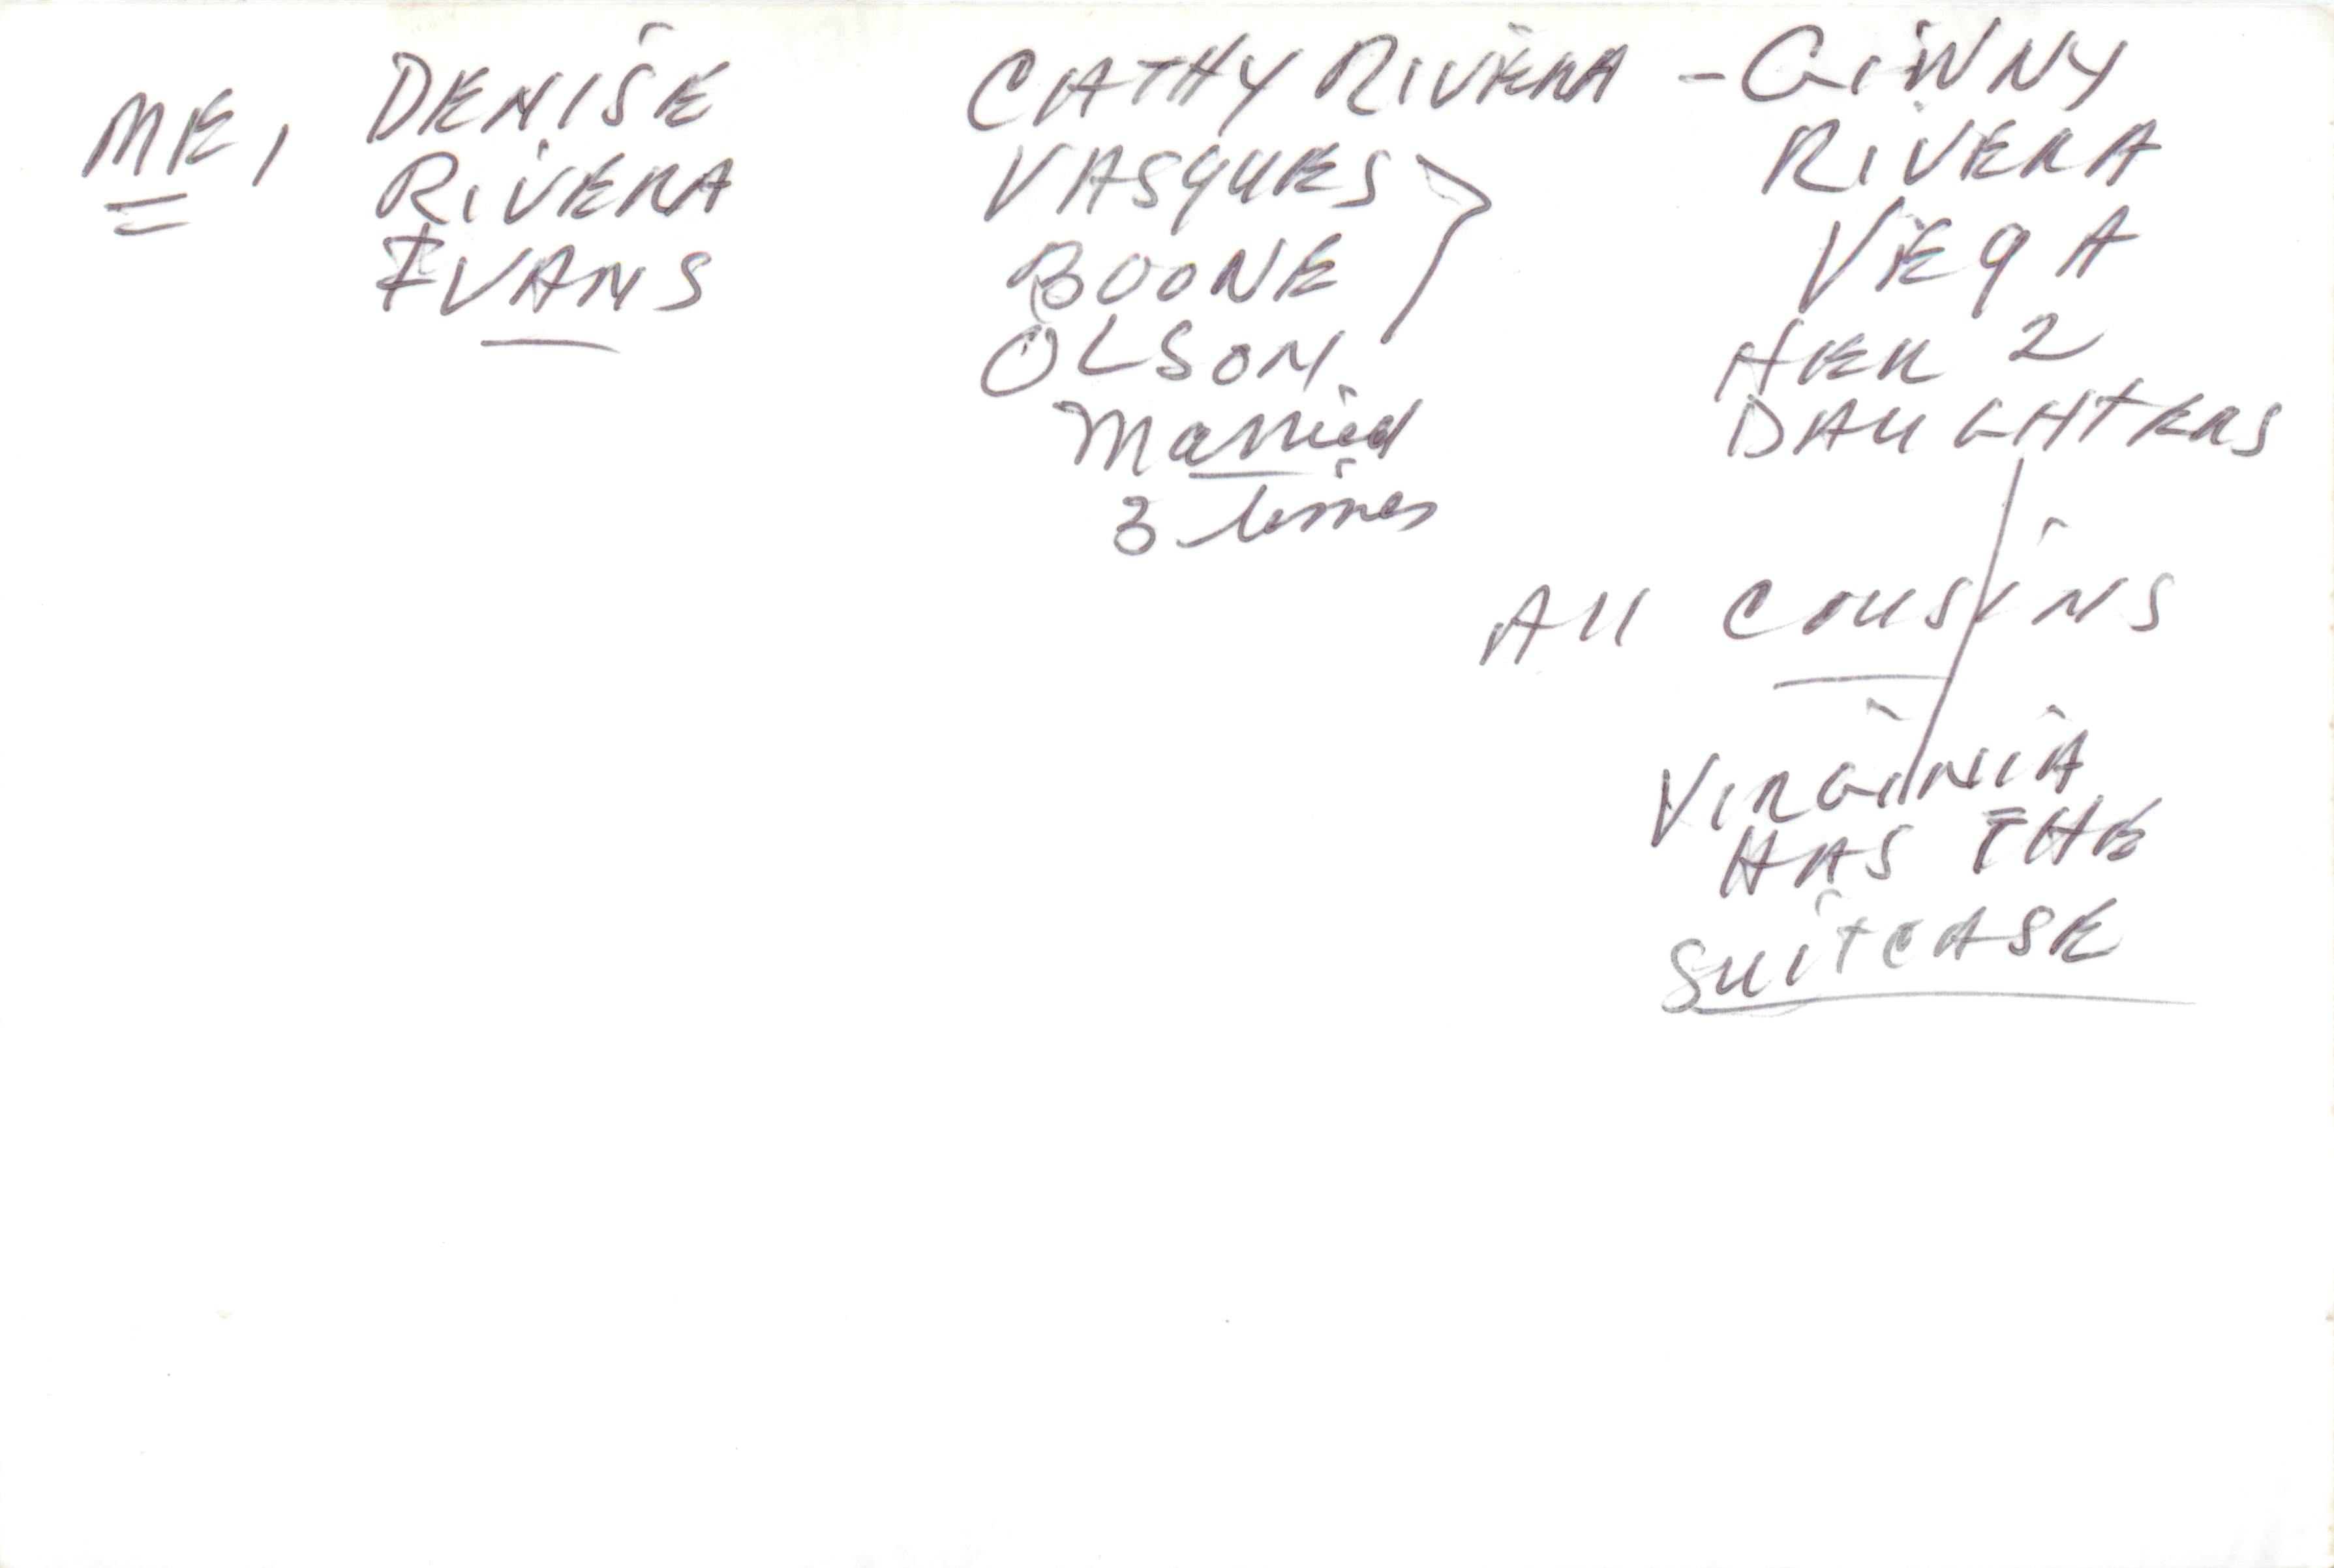 ME, DENISE
RIVERA
EVANS
CATHY RIVERA -
VASQUES
BOONE
OLSON
Married
3 times
GINNY
RIVERA
VEGA
HER 2
DAUGHTERS
All COUSINS
VIRGINIA
HAS THE
SUITCASE